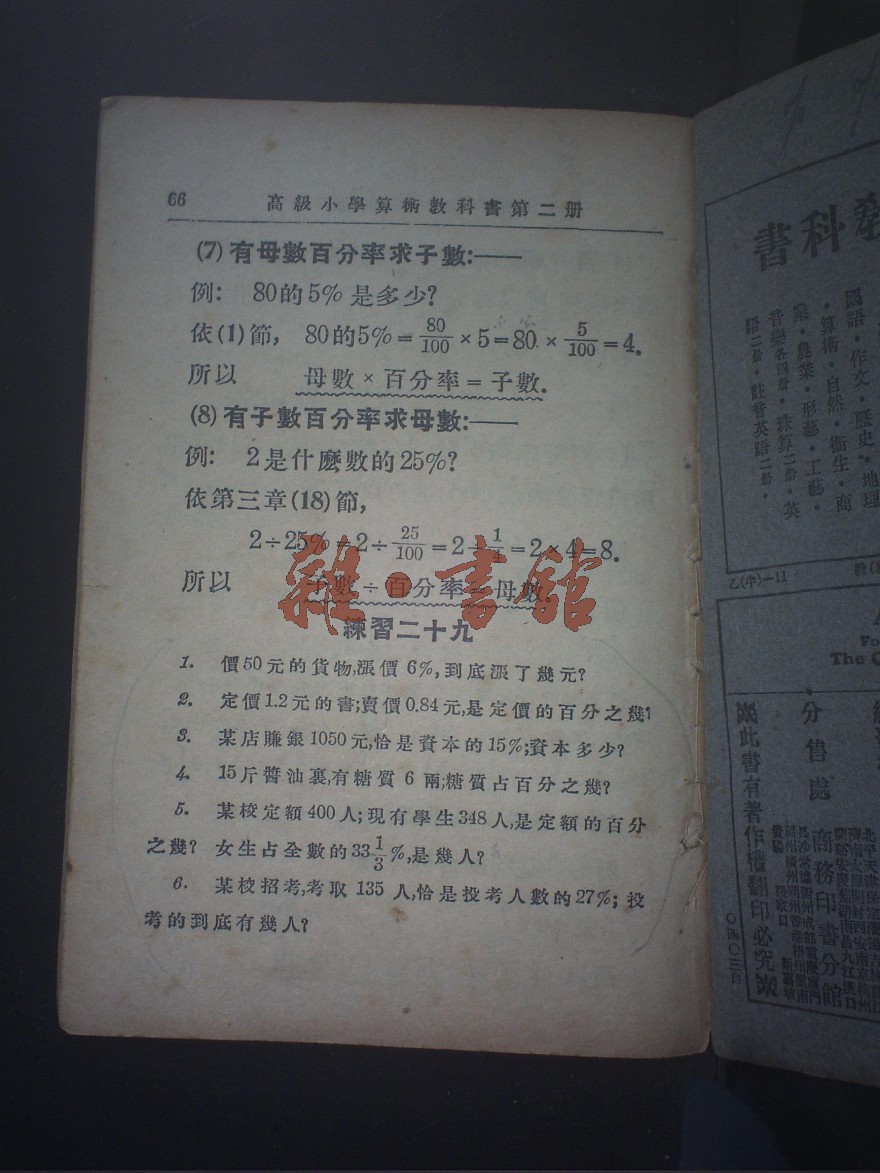 66 高級小學算術教科書第二册
(7)有母數百分率求子數:——
例: 80的5%是多少?
依(1)節, 80的5%=80/100×5=80×5/100=4.
所以 母數×百分率=子數.
(8)有子數百分率求母數:——
例: 2是什麽數的25%?
依第三章(18)節,
2÷25%=2÷25/100=2÷1/4=2×4=8.
所以 子數÷百分率=母數.
雜·書館
練習二十九
1. 價50元的貨物,漲價6%,到底漲了幾元?
2. 定價1.2元的書;賣價0.84元,是定價的百分之幾?
3. 某店賺銀1050元,恰是資本的15%;資本多少?
4. 15斤醬油裏,有糖質6兩;糖質占百分之幾?
5. 某校定額400人;現有學生348人,是定額的百分
之幾? 女生占全數的33 1/3%,是幾人?
6. 某校招考,考取135人,恰是投考人數的27%;投
考的到底有幾人?
教科書
國語·作文·歷史·地理
·算術·自然·衞生·商
業·農業·形藝·工藝·
音樂各四册·珠算二册·英
語二册·註音英語二册·
乙(中)—11
The C
分售處
商務印書分館
此書有著作權翻印必究